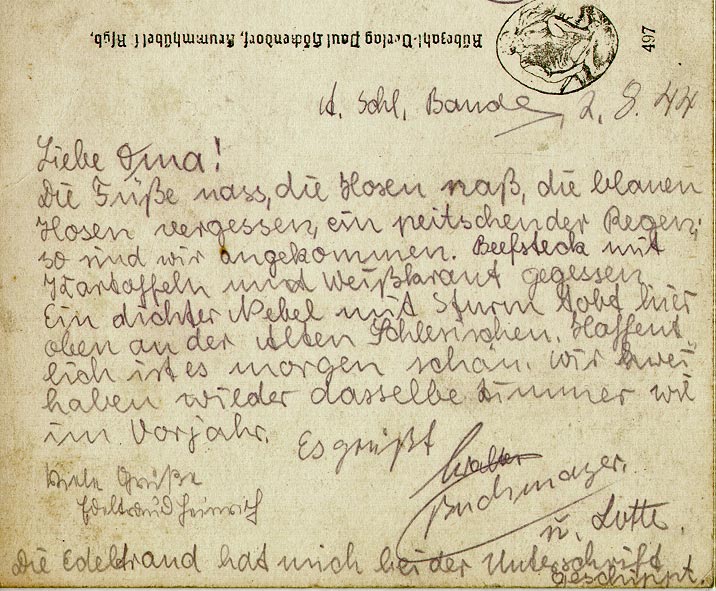 Rübezahl-Verlag Paul Höckendorf, Krummhübel i. Rsgb.
497
A. Schl. Baude, 2. 8. 44
Liebe Oma!
Die Füße nass, die Hosen naß, die blauen
Hosen vergessen, ein peitschender Regen;
so sind wir angekommen. Beefsteck mit
Kartoffeln und Weißkraut gegessen
Ein dichter Nebel mit Sturm tobt hier
oben an der Alten Schlesischen. Hoffent-
lich ist es morgen schön. Wir zwei
haben wieder dasselbe Zimmer wie
im Vorjahr. Es grüßt
Walter
Viele Grüße
Edeltraud Heinrich
u. Lotte.
Die Edeltraud hat mich bei der Unterschrift
geschuppt.